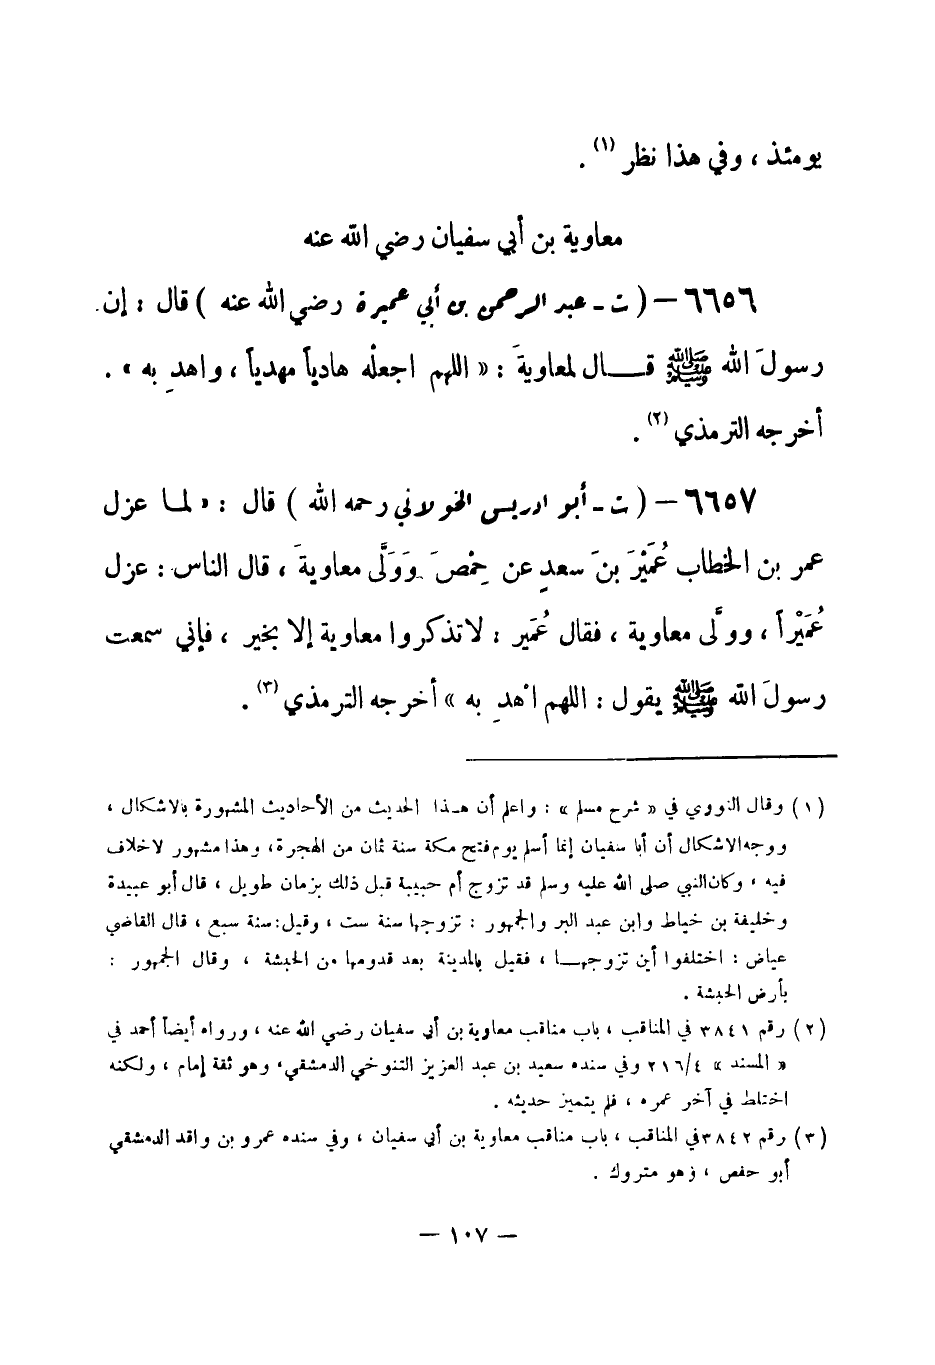 يومئذ ، وفي هذا نظر (١) .
معاوية بن أبي سفيان رضي الله عنه
٦٦٥٦ – ( ت - عبد الرحمن بن أبي عميرة رضي الله عنه ) قال : إن
رسولَ الله ﷺ قـــال لمعاويةَ : « اللهم اجعلْه هادياً مهدياً ، واهدِ به » .
أخرجه الترمذي (٢) .
٦٦٥٧ – ( ت - أبو ادريس الخولاني رحمه الله ) قال : « لمـا عزل
عمر بن الخطاب عُمَيْرَ بنَ سعدٍ عن حِمْصَ وَوَلَّى معاويةَ ، قال الناس : عزل
عُمَيْراً ، وولَّى معاوية ، فقال عُمَير : لا تذكروا معاوية إلا بخير ، فإني سمعت
رسولَ الله ﷺ يقول : اللهم اهْدِ به » أخرجه الترمذي (٣) .
(١) وقال النووي في « شرح مسلم » : واعلم أن هـذا الحديث من الأحاديث المشهورة بالاشكال ،
ووجه الاشكال أن أبا سفيان إنما أسلم يوم فتح مكة سنة ثمان من الهجرة ، وهذا مشهور لا خلاف
فيه ، وكان النبي صلى الله عليه وسلم قد تزوج أم حبيبة قبل ذلك بزمان طويل ، قال أبو عبيدة
وخليفة بن خياط وابن عبد البر والجمهور : تزوجها سنة ست ، وقيل : سنة سبع ، قال القاضي
عياض : اختلفوا أين تزوجهـــا ، فقيل بالمدينة بعد قدومها من الحبشة ، وقال الجمهور :
بأرض الحبشة .
(٢) رقم ٣٨٤١ في المناقب ، باب مناقب معاوية بن أبي سفيان رضي الله عنه ، ورواه أيضاً أحمد في
« المسند » ٢١٦/٤ وفي سنده سعيد بن عبد العزيز التنوخي الدمشقي ، وهو ثقة إمام ، ولكنه
اختلط في آخر عمره ، فلم يتميز حديثه .
(٣) رقم ٣٨٤٢ في المناقب ، باب مناقب معاوية بن أبي سفيان ، وفي سنده عمرو بن واقد الدمشقي
أبو حفص ، وهو متروك .
– ١٠٧ –